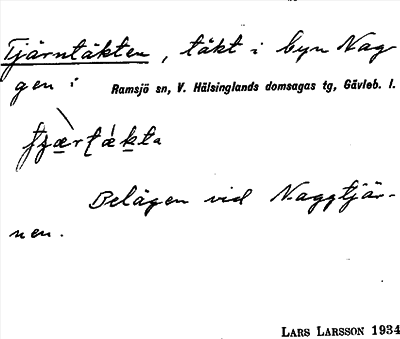 Tjärntäkten, täkt i byn Nag-
gen i Ramsjö sn, V. Hälsinglands domsagas tg, Gävleb. l.
Belägen vid Naggtjär-
nen.
LARS LARSSON 1934